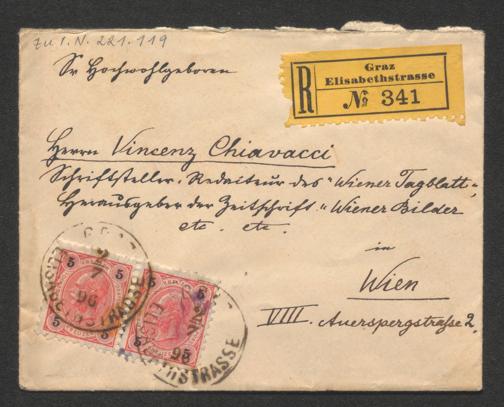 Zu I.N. 221.119
Sr Hochwohlgeboren
Graz
Elisabethstrasse
R № 341
Herrn Vincenz Chiavacci
Schriftsteller, Redacteur des "Wiener Tagblatt",
Herausgeber der Zeitschrift "Wiener Bilder
etc. etc.
in
Wien
VIII. Auerspergstraße 2.
GRAZ
2/7
96
ELISABETHSTRASSE
5 5 5 5
5 5
96
ELISABETHSTRASSE